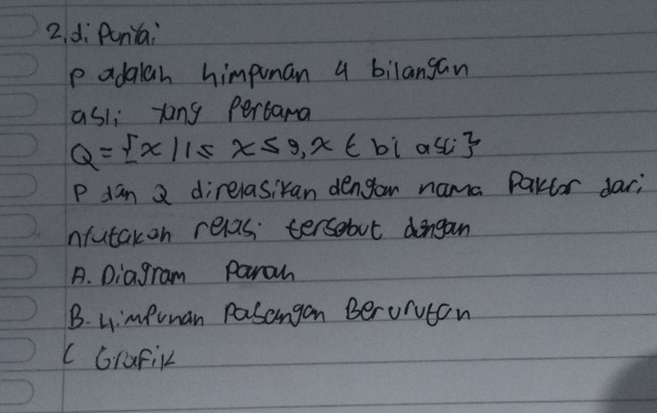 2. di Punyai
P adalah himpunan 4 bilangan
asli yang Pertama
Q = {x | 1 ≤ x ≤ 9, x ∈ bi asli}
P dan Q direlasikan dengan nama Faktor dari
nyatakan relasi tersebut dengan
A. Diagram Panah
B. Himpunan Pasangan Berurutan
C Grafik